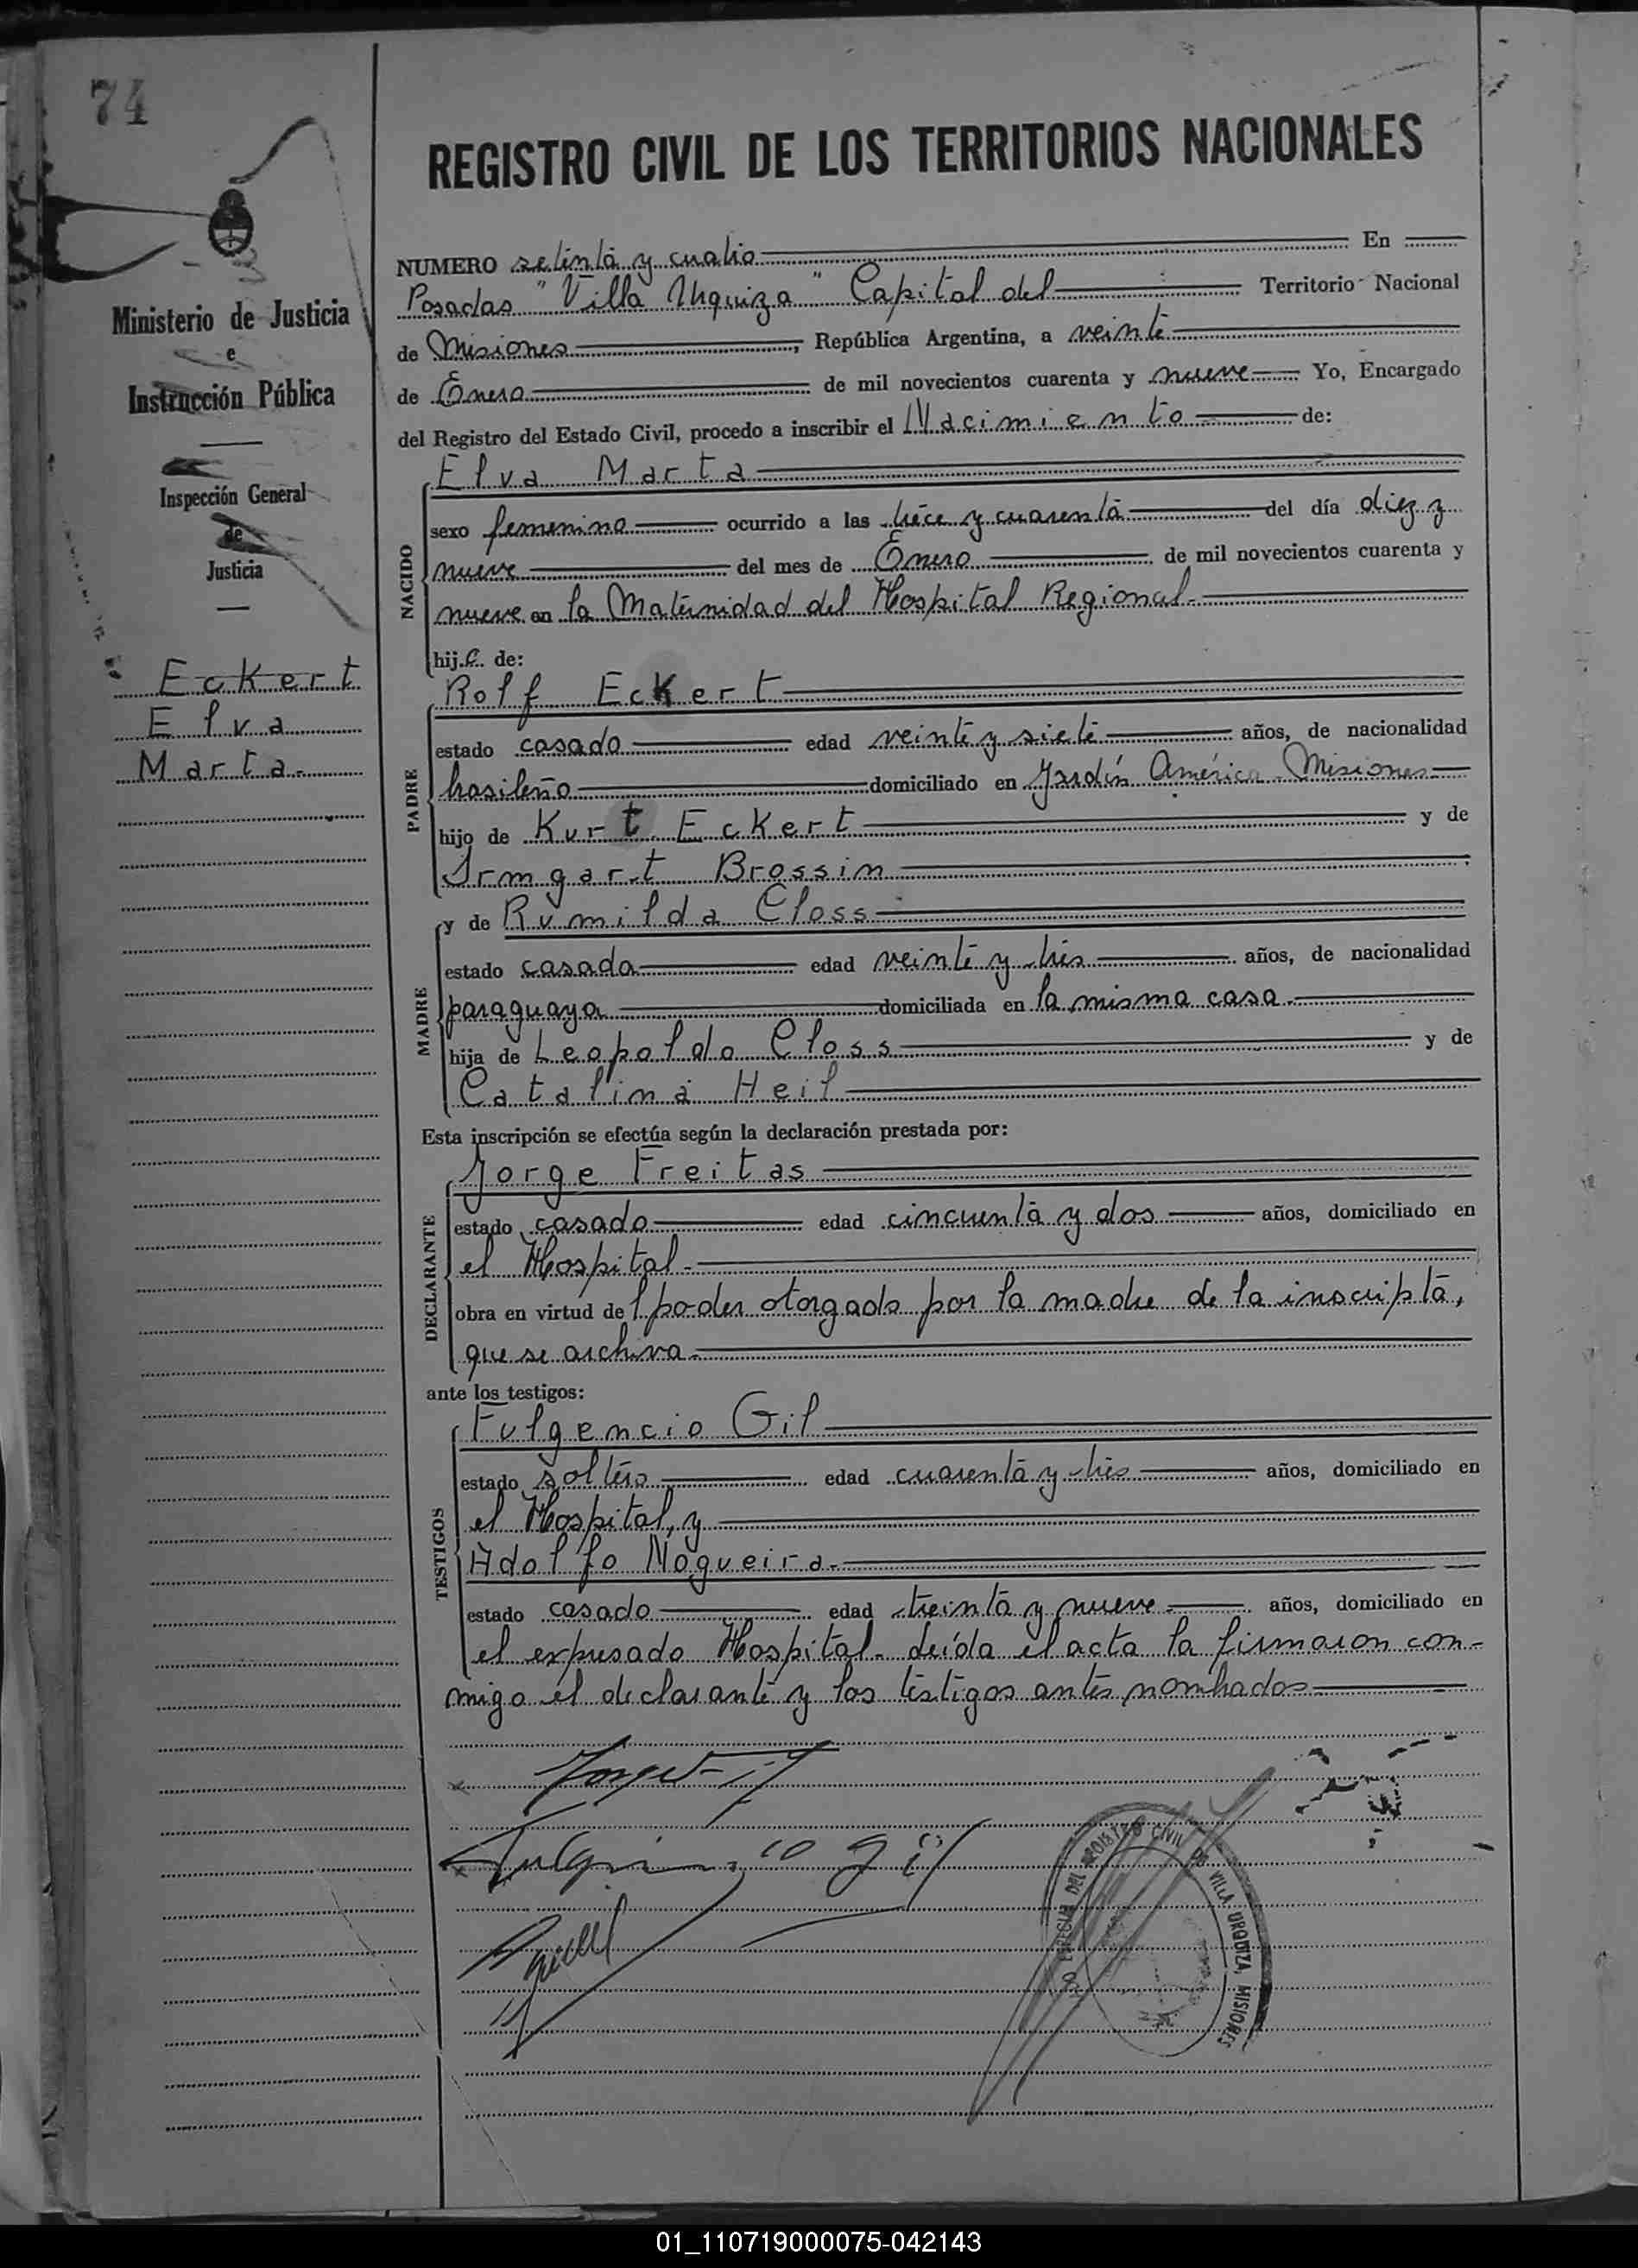 74
REGISTRO CIVIL DE LOS TERRITORIOS NACIONALES
Ministerio de Justicia
e
Instrucción Pública
Inspección General
de
Justicia
Eckert
Elva
Marta.
NUMERO setenta y cuatro En
Posadas "Villa Urquiza" Capital del Territorio Nacional
de Misiones, República Argentina, a veinte
de Enero de mil novecientos cuarenta y nueve Yo, Encargado
del Registro del Estado Civil, procedo a inscribir el Nacimiento de:
NACIDO
Elva Marta
sexo femenino ocurrido a las trece y cuarenta del día diez y
nueve del mes de Enero de mil novecientos cuarenta y
nueve en la Maternidad del Hospital Regional.
hija de:
PADRE
Rolf Eckert
estado casado edad veinte y siete años, de nacionalidad
brasileño domiciliado en Jardín América Misiones
hijo de Kurt Eckert y de
Irmgart Brossin
MADRE
y de Rumilda Closs
estado casada edad veinte y tres años, de nacionalidad
paraguaya domiciliada en la misma casa.
hija de Leopoldo Closs y de
Catalina Heil
Esta inscripción se efectúa según la declaración prestada por:
DECLARANTE
Jorge Freitas
estado casado edad cincuenta y dos años, domiciliado en
el Hospital.
obra en virtud del poder otorgado por la madre de la inscripta,
que se archiva.
ante los testigos:
TESTIGOS
Fulgencio Gil
estado soltero edad cuarenta y tres años, domiciliado en
el Hospital, y
Adolfo Nogueira.
estado casado edad treinta y nueve. años, domiciliado en
el expresado Hospital. Leída el acta la firmaron con-
migo el declarante y los testigos antes nombrados
Fulgencio gil
DEL REGISTRO CIVIL DE VILLA URQUIZA, MISIONES
01_110719000075-042143